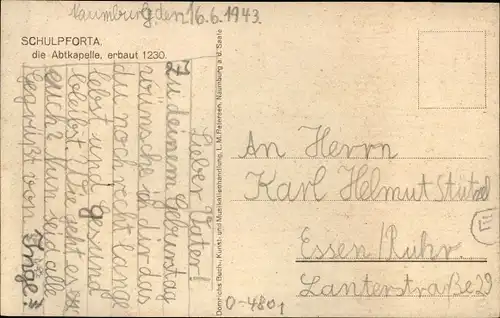 Naumburg den 16.6.1943.
SCHULPFORTA,
die Abtkapelle, erbaut 1230.
Lieber Vater!
Zu deinem Geburtag
wünsche ich dir das
du noch recht lange
lebst und gesund
bleibst. Wie geht es
euch? Nun seid alle
gegrüßt von Inge.
Domrichs Buch-, Kunst- und Musikalienhandlung, L. M. Petersen, Naumburg a. d. Saale
An Herrn
Karl Helmut
Essen/Ruhr.
Lanterstraße 29
0-4801